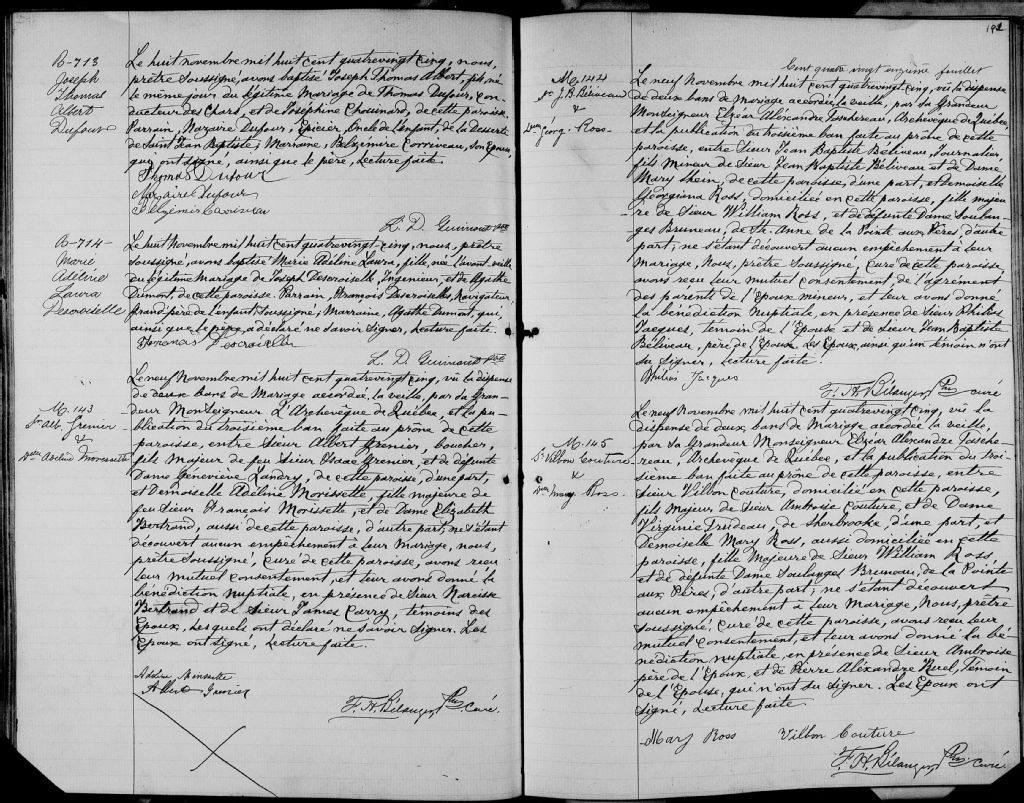 B-713
Joseph
Thomas
Albert
Dufour
Le huit novembre mil huit cent quatrevingt cinq, nous,
prêtre soussigné, avons baptisé Joseph Thomas Albert, fils, né
le même jour du légitime mariage de Thomas Dufour, con-
ducteur des Chars, et de Joséphine Chouinard, de cette paroisse.
Parrain, Nazaire Dufour, Epicier, Oncle de l'enfant, de la Desserte
de Saint Jean Baptiste; Marraine, Pelzemire Corriveau, Son Epouse,
qui ont signé, ainsi que le père, Lecture faite.
Thomas Dufour
Nazaire Dufour
Pelzémir Coriveau
L. D. Guimont Ptre
B-714-
Marie
Adéline
Laura
Descroiselle
Le huit Novembre mil huit cent quatrevingt-cinq, nous, prêtre
soussigné, avons baptisé Marie Adéline Laura, fille, née l'avant-veille
du légitime mariage de Joseph Desroiselle, Ingénieur, et de Agathe
Dumont, de cette paroisse. Parrain, François Descroiselles, Navigateur,
Grand père de l'enfant, soussigné; Marraine, Agathe Dumont, qui,
ainsi que le père, a déclaré ne savoir signer, Lecture faite.
L. D. Guimont Ptre
M. 143
Sr Alb. Grenier
&
Dlle Adeline Morissette
Le neuf Novembre mil huit cent quatrevingt cinq, vû la dispense
de deux bans de mariage accordée la veille, par Sa Gran-
deur Monseigneur L'Archevêque de Québec, et la pu-
blication du troisième ban faite au prône de cette
paroisse, entre Sieur Albert Grenier, boucher,
fils majeur de feu Sieur Isaac Grenier, et de défunte
Dame Géneviève Landry, de cette paroisse, d'une part,
et Demoiselle Adéline Morissette, fille majeure de
feu Sieur François Morissette, et de Dame Elizabeth
Bertrand, aussi de cette paroisse, d'autre part; ne s'étant
découvert aucun empêchement à leur mariage, nous,
prêtre soussigné, curé de cette paroisse, avons reçu
leur mutuel consentement, et leur avons donné la
bénédiction nuptiale, en présence de Sieur Narcisse
Bertrand et de Sieur James Carry, témoins des
Epoux, lesquels ont déclaré ne savoir signer. Les
Epoux ont signé, Lecture faite.
Albert Grenier
F. H. Bélanger, Ptre curé.
Cent quatre vingt onzième feuillet
M. 144
Sr J. B. Béliveau
&
Dlle Géorg. Ross.
Le neuf Novembre mil huit cent quatrevingt cinq, vû la dispense
de deux bans de Mariage accordée la veille, par Sa Grandeur
Monseigneur Elzéar Alexandre Taschereau, Archevêque de Québec
et la publication du troisième ban faite au prône de cette
paroisse, entre Sieur Jean Baptiste Béliveau, Journalier,
fils Mineur de Sieur Jean Baptiste Béliveau et de Dame
Mary Shein, de cette paroisse, d'une part, et Demoiselle
Géorgiana Ross, domiciliée en cette paroisse, fille majeu-
re de Sieur William Ross, et de défunte Dame Soulan-
ges Bruneau, de Ste Anne de la Pointe aux Pères, d'autre
part; ne s'étant découvert aucun empêchement à leur
Mariage, Nous, prêtre soussigné, curé de cette paroisse,
avons reçu leur mutuel consentement, de l'agrément
des parents de l'Epoux mineur, et leur avons donné
la bénédiction Nuptiale, en présence de Sieur Philias
Jacques, témoin de l'Epouse et de Sieur Jean Baptiste
Béliveau, père de l'Epoux. Les Epoux, ainsi qu'un témoin n'ont
su signer, Lecture faite.
F. H. Bélanger, Ptre curé
M. 145
Sr Vilbon Couture
&
Dlle Mary Ross.
Le neuf Novembre mil huit cent quatrevingt cinq, vû la
dispense de deux bans de Mariage accordée la veille,
par Sa Grandeur Monseigneur Elzéar Alexandre Tasche-
reau, Archevêque de Québec, et la publication du troi-
sième ban faite au prône de cette paroisse, entre
Sieur Vilbon Couture, domicilié en cette paroisse,
fils Majeur de Sieur Ambroise Couture, et de Dame
Virginie Trudeau, de Sherbrooke, d'une part, et
Demoiselle Mary Ross, aussi domiciliée en cette
paroisse, fille Majeure de Sieur William Ross
et de défunte Dame Soulanges Bruneau, de la Pointe
aux Pères, d'autre part; ne s'étant découvert
aucun empêchement à leur Mariage, Nous, prêtre
soussigné, curé de cette paroisse, avons reçu leur
mutuel consentement, et leur avons donné la bé-
nédiction nuptiale, en présence de Sieur Ambroise
père de l'Epoux, et de Pierre Aléxandre Ruel, Témoin
de l'Epouse, qui n'ont su signer. Les Epoux ont
signé, Lecture faite.
Mary Ross Vilbon Couture
F. H. Bélanger, Ptre curé